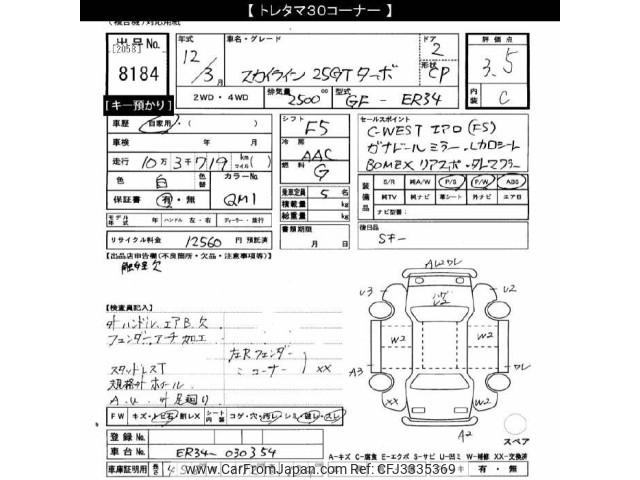 【 トレタマ30コーナー 】
(複合機)対応用紙
出品No.
[2058]
8184
【キー預かり】
年式
12/3月
車名・グレード
スカイライン 25GT ターボ
ドア
2
形状
CP
評価点
3.5
内装
C
2WD・4WD
排気量
2500cc
型式
GF - ER34
車歴
自家用・( )
車検
年 月
走行
10万3千719km(マイル)
色
白
カラーNo.
QM1
保証書
有・無
シフト
F5
冷房
AAC
燃料
G
乗車定員
5名
積載量
kg
総重量
kg
セールスポイント
C-WEST エアロ(FS)
ガナドールミラー・レカロシート
BOMEX リアスポ・タレマフラー
装備品
S/R 純A/W P/S P/W ABS
純TV 純ナビ 革シート 外ナビ エアロ
ナビ型番:
モデル年式
年
ハンドル
左・右
ディーラー・並行
リサイクル料金
12560
円 預託済
書類期限
月 日
後日品
Sキー
【出品店申告欄(不良箇所・欠品・注意事項等)】
触媒欠
【検査員記入】
外ハンドル、エアB.欠
フェンダーアーチ加工
左Rフェンダー
コーナー
XX
スタッドレスT
規格外ホイール
A.W. 外足廻り
AW2ワレ
U3
U2
W2
W2
W2
A3
ワレ
XX
A2
スペア
FW
キズ・トビ石・割レX
シート内装
コゲ・穴・汚レ・シミ・破レ・スレ
登録No.
車台No.
ER34-030354
A-キズ C-腐食 E-エクボ S-サビ U-凹ミ W-補修 XX-交換済
車庫証明用
長さ
有・無
www.CarFromJapan.com Ref: CFJ3835369